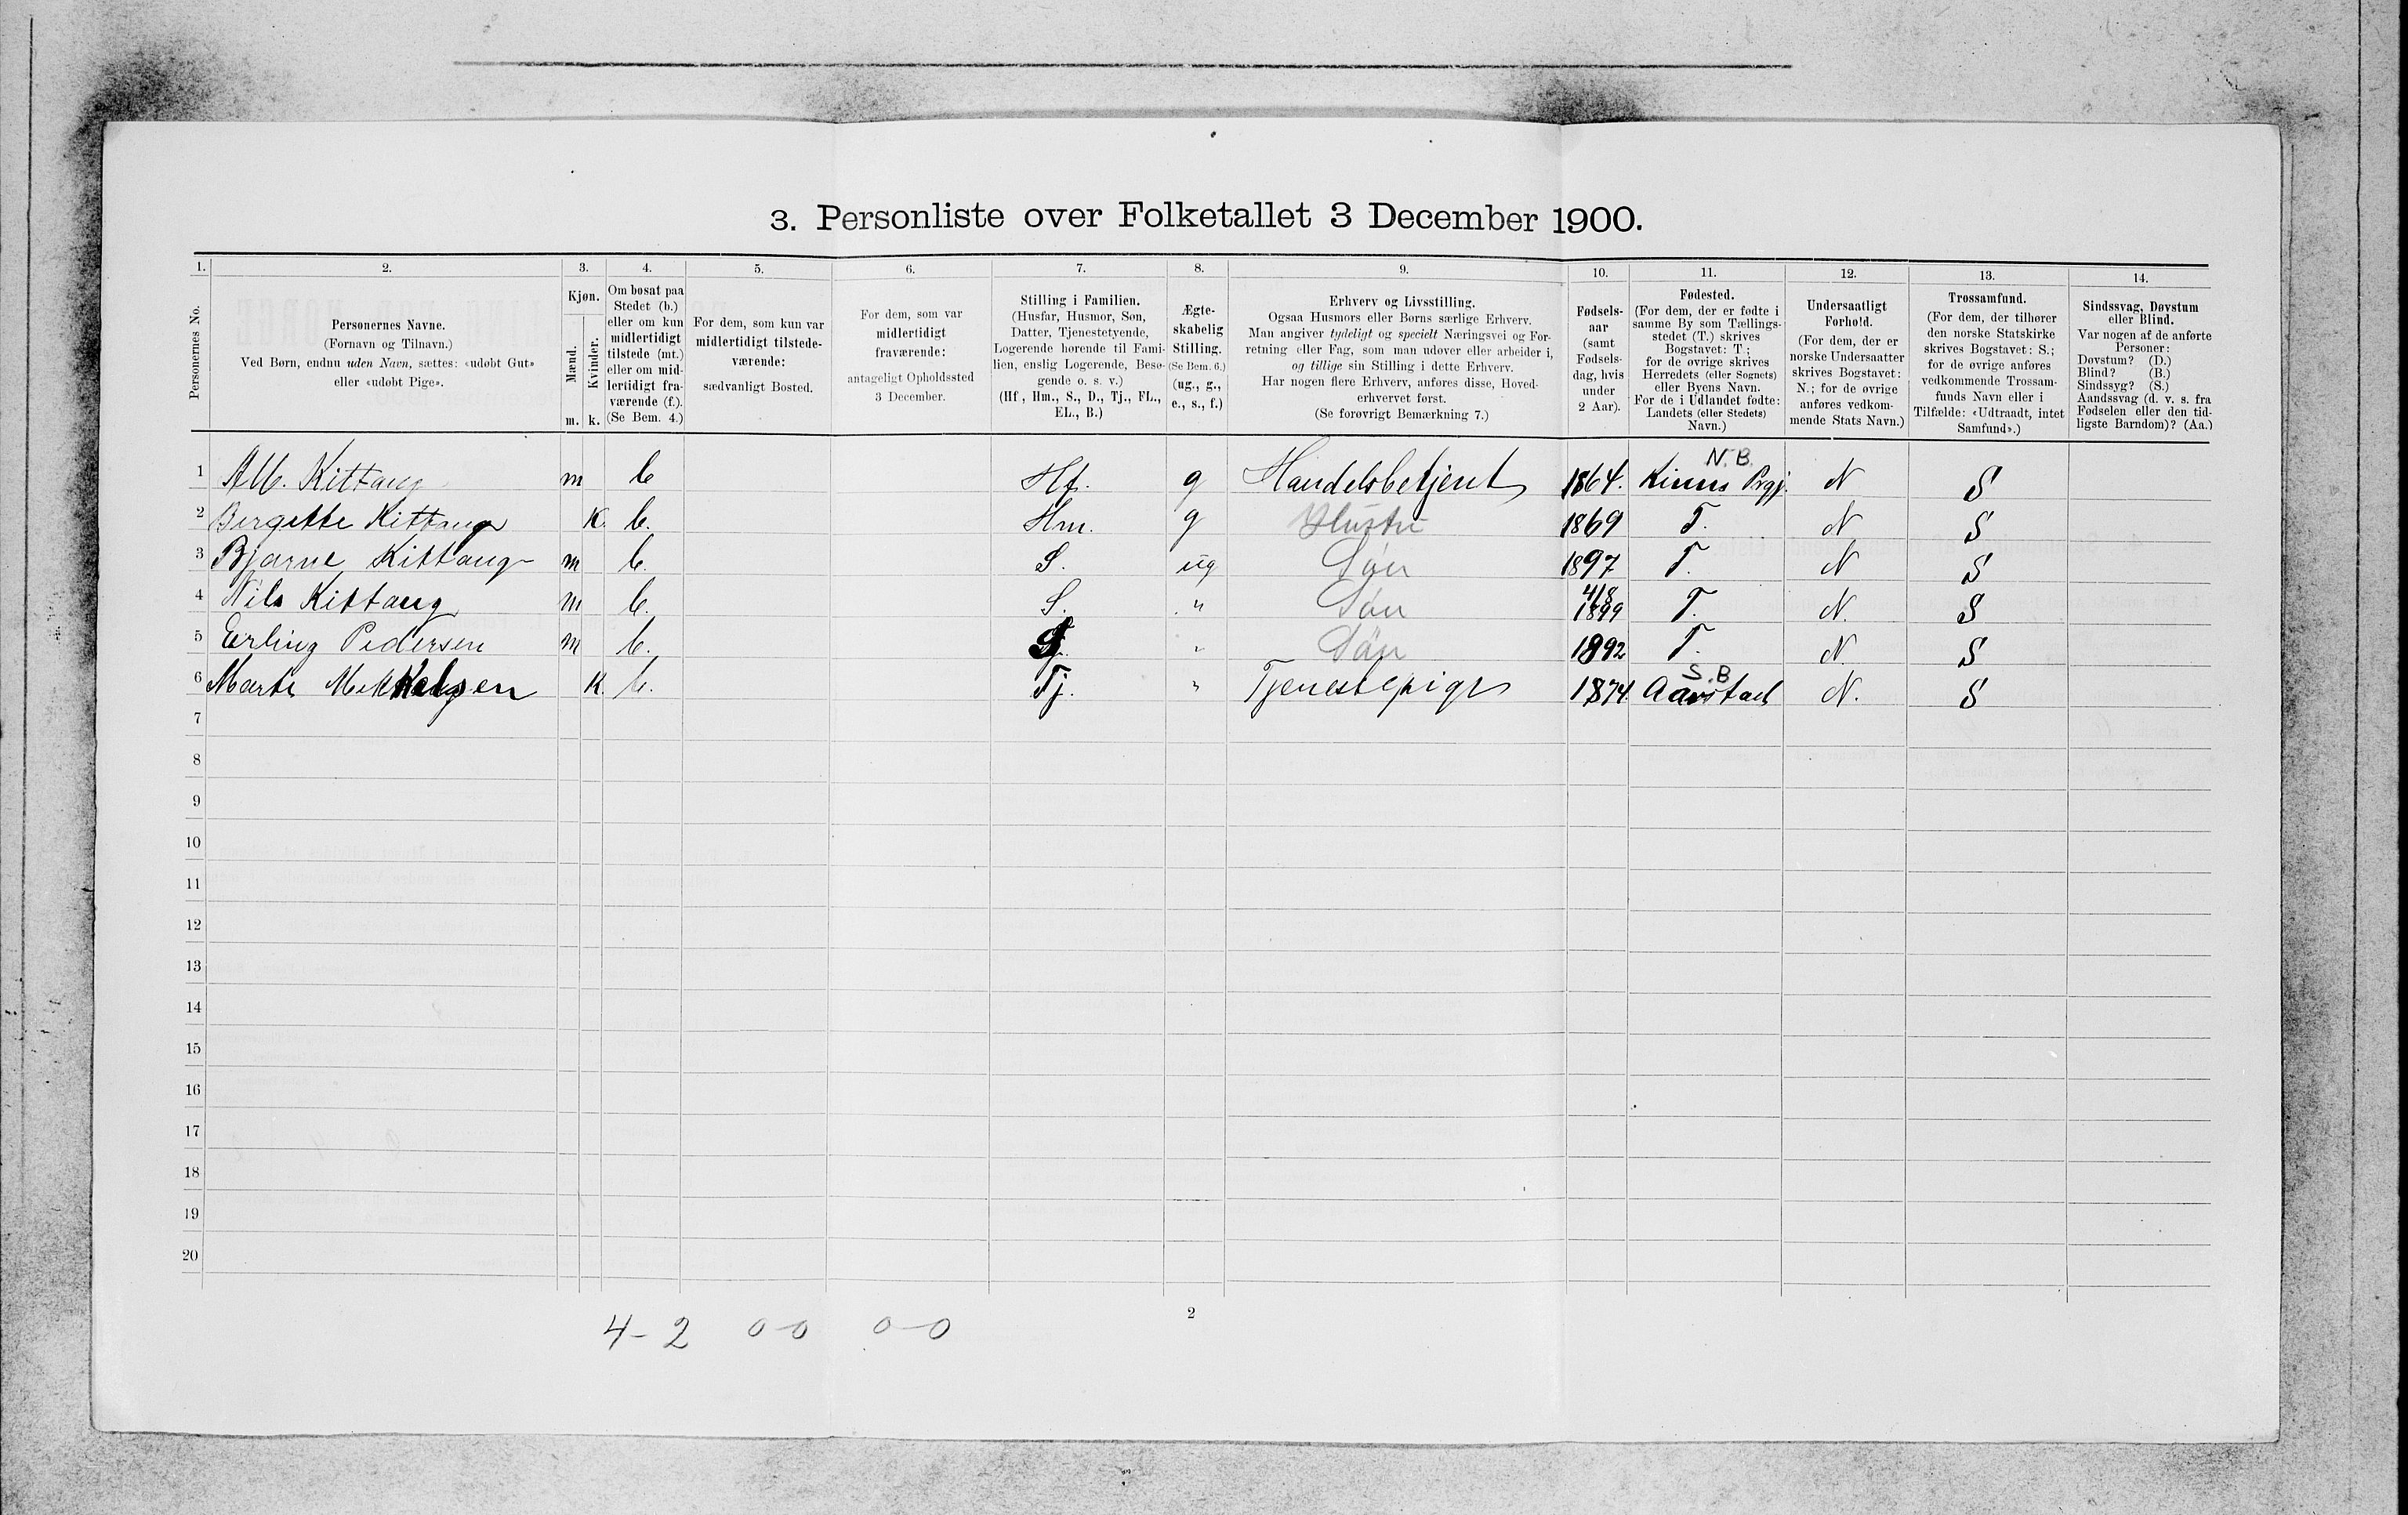 3. Personliste over Folketallet 3 December 1900.
1. 2. 3. 4. 5. 6. 7. 8. 9. 10. 11. 12. 13. 14.
Personernes No.
Personernes Navne.
(Fornavn og Tilnavn.)
Ved Børn, endnu uden Navn, sættes: «udøbt Gut»
eller «udøbt Pige».
Kjøn.
Mænd. Kvinder.
m. k.
Om bosat paa
Stedet (b.)
eller om kun
midlertidigt
tilstede (mt.)
eller om mid-
lertidigt fra-
værende (f.).
(Se Bem. 4.)
For dem, som kun var
midlertidigt tilstede-
værende:
sædvanligt Bosted.
For dem, som var
midlertidigt
fraværende:
antageligt Opholdssted
3 December.
Stilling i Familien.
(Husfar, Husmor, Søn,
Datter, Tjenestetyende,
Logerende hørende til Fami-
lien, enslig Logerende, Besø-
gende o. s. v.)
(Hf, Hm., S., D., Tj., FL.,
EL., B.)
Ægte-
skabelig
Stilling.
(Se Bem. 6.)
(ug., g.,
e., s., f.)
Erhverv og Livsstilling.
Ogsaa Husmors eller Børns særlige Erhverv.
Man angiver tydeligt og specielt Næringsvei og For-
retning eller Fag, som man udøver eller arbeider i,
og tillige sin Stilling i dette Erhverv.
Har nogen flere Erhverv, anføres disse, Hoved-
erhvervet først.
(Se forøvrigt Bemærkning 7.)
Fødsels-
aar
(samt
Fødsels-
dag, hvis
under
2 Aar).
Fødested.
(For dem, der er fødte i
samme By som Tællings-
stedet (T.) skrives
Bogstavet: T.;
for de øvrige skrives
Herredets (eller Sognets)
eller Byens Navn.
For de i Udlandet fødte:
Landets (eller Stedets)
Navn.)
Undersaatligt
Forhold.
(For dem, der er
norske Undersaatter
skrives Bogstavet:
N.; for de øvrige
anføres vedkom-
mende Stats Navn.)
Trossamfund.
(For dem, der tilhører
den norske Statskirke
skrives Bogstavet: S.;
for de øvrige anføres
vedkommende Trossam-
funds Navn eller i
Tilfælde: «Udtraadt, intet
Samfund».)
Sindssvag, Døvstum
eller Blind.
Var nogen af de anførte
Personer:
Døvstum? (D.)
Blind? (B.)
Sindssyg? (S.)
Aandssvag (d. v. s. fra
Fødselen eller den tid-
ligste Barndom)? (Aa.)
N. B.
1 Alb. Kittang m b Hf. g Handelsbetjent 1864. Kinns Prgj. N S
2 Bergitte Kittang K. b. Hm. g Hustru 1869 T. N S
3 Bjarne Kittang m b. S. ug Søn 1897 T. N S
4 Nils Kittang m b. S. " Søn 4/8 1899 T. N. S
5 Erling Pedersen m b. " Søn 1892 T. N. S
S. B
6 Marta Mikkelsen K. b. Tj. " Tjenestepige 1874. Aarstad N. S
7
8
9
10
11
12
13
14
15
16
17
18
19
20
2
4-2 0-0 0-0